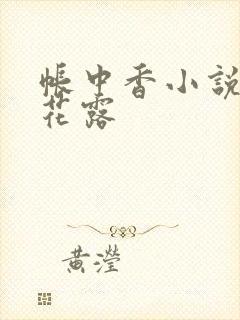 帳中香小說
花露
黃瀅